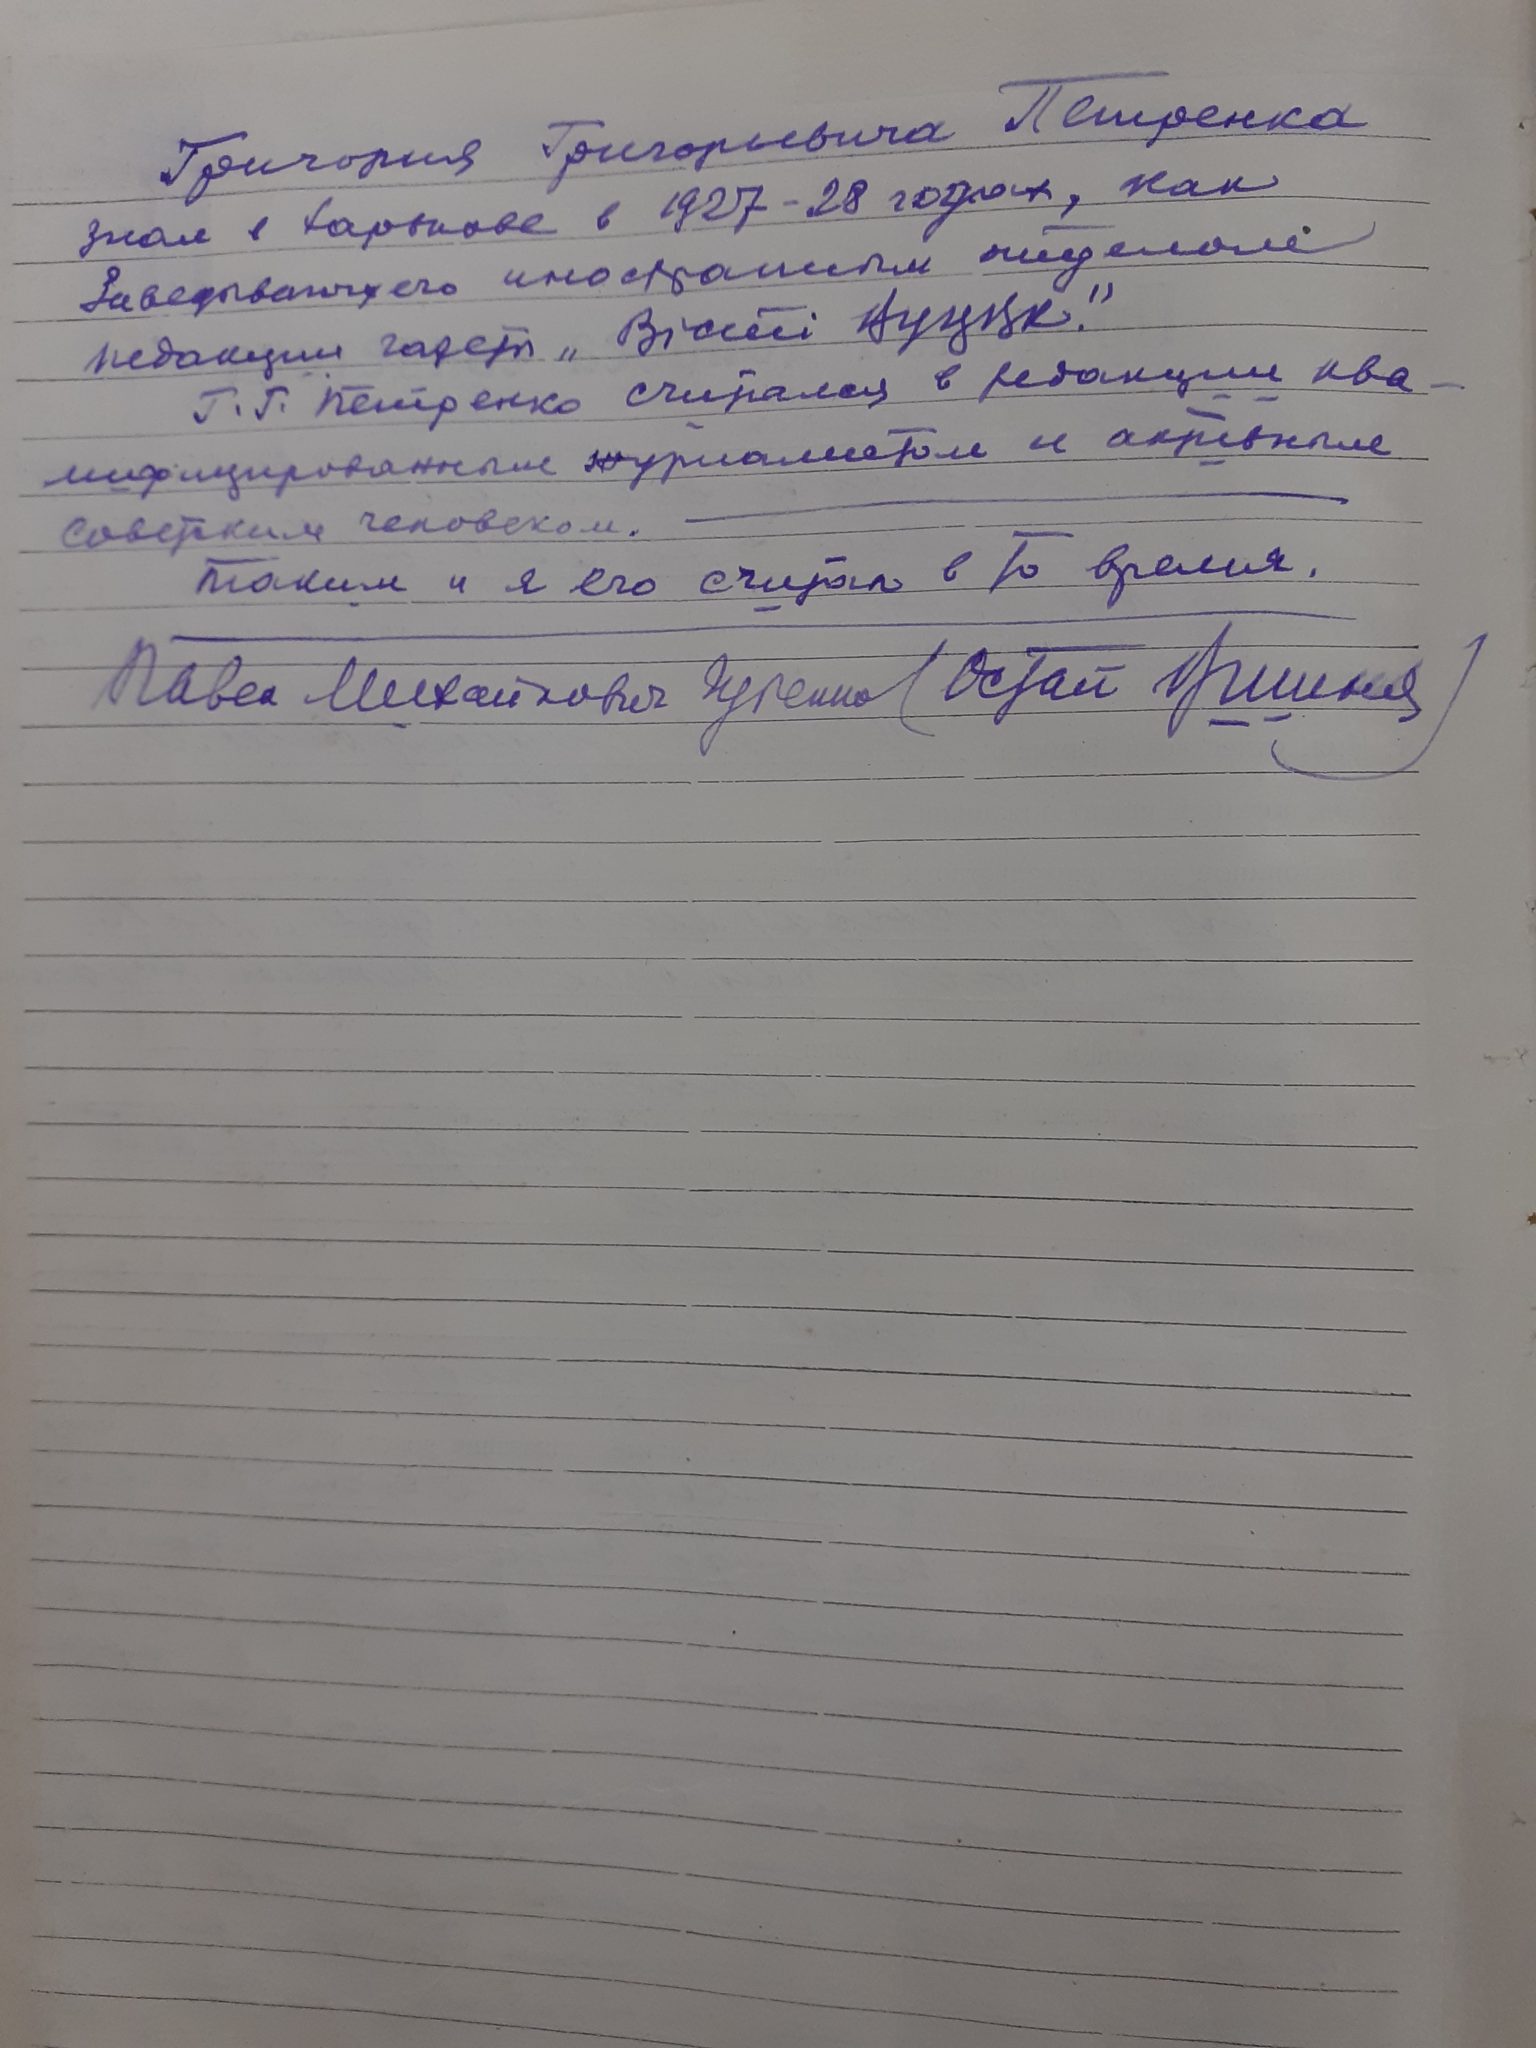 Григория Григорьевича Петренка
знал в Харькове в 1927-28 годах, как
Заведывающего иностранным отделом
редакции газеты „Вісті ВУЦВК."
Г. Г. Петренко считался в редакции ква-
лифицированным журналистом и активным
советским человеком.
Таким и я его считал в то время.
Павел Михайлович Губенко (Остап Вишня)